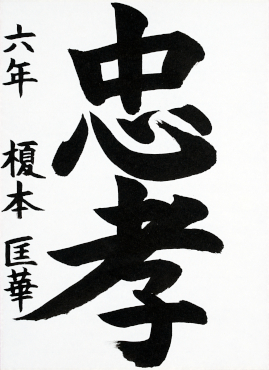 忠孝
六年 榎本匡華